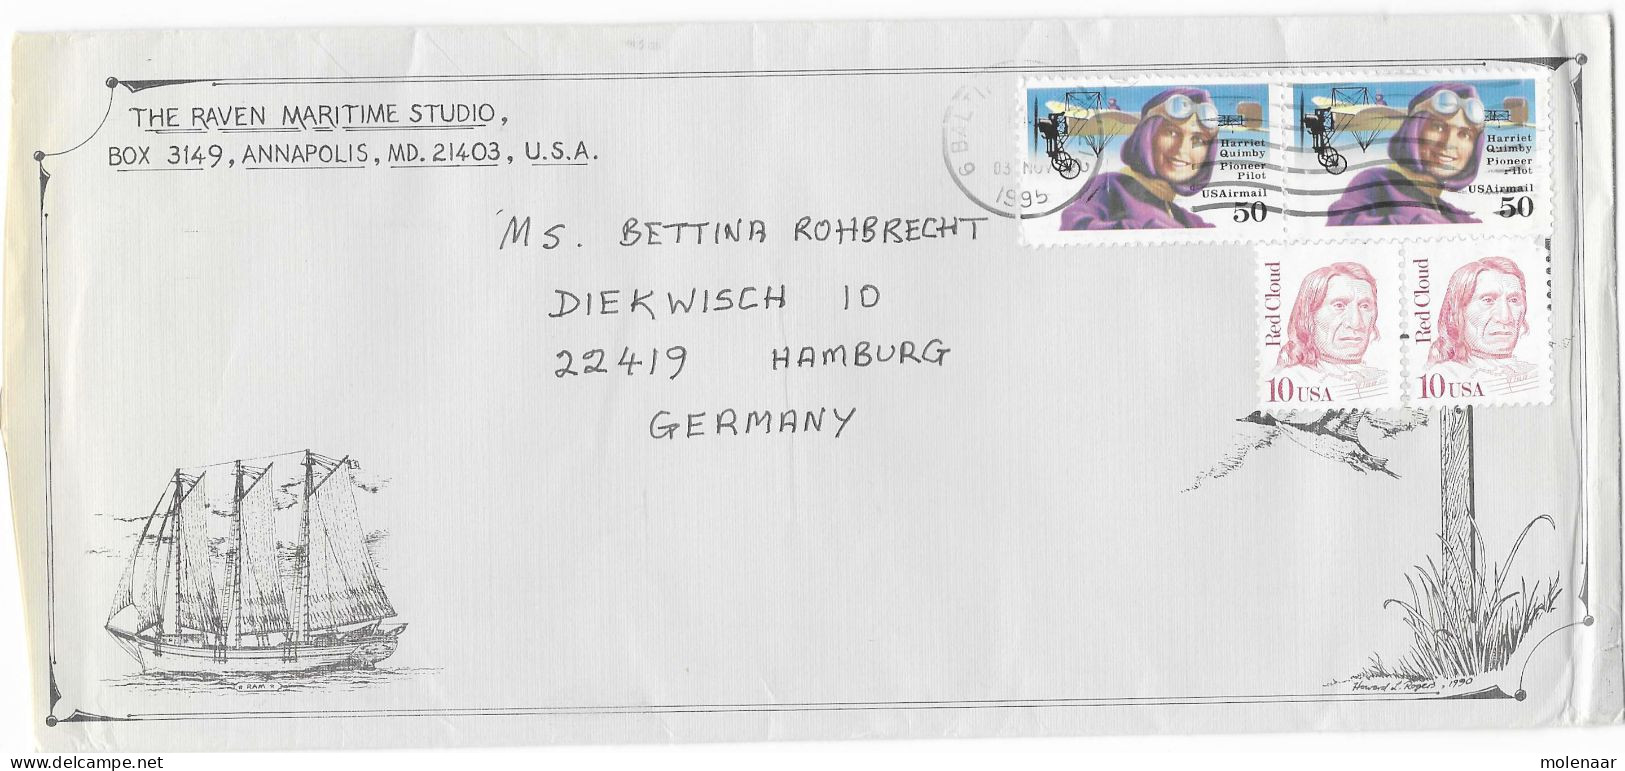 THE RAVEN MARITIME STUDIO,
BOX 3149, ANNAPOLIS, MD. 21403, U.S.A.
MS. BETTINA ROHBRECHT
DIEKWISCH 10
22419 HAMBURG
GERMANY
03 NOV
1995
Harriet
Quimby
Pioneer
Pilot
USAirmail
50
Harriet
Quimby
Pioneer
Pilot
USAirmail
50
Red Cloud
10 USA
Red Cloud
10 USA
RAM
Howard L. Rogers, 1990
delcampe.net
molenaar